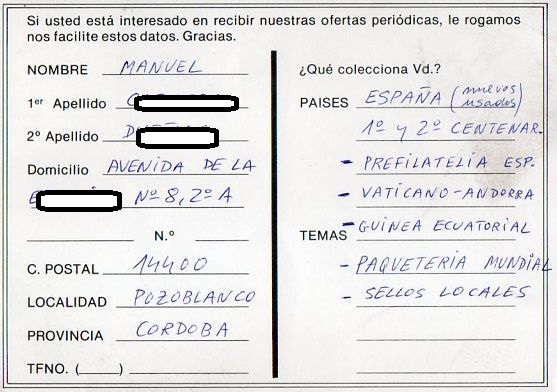 Si usted está interesado en recibir nuestras ofertas periódicas, le rogamos
nos facilite estos datos. Gracias.
NOMBRE MANUEL
1er Apellido
2º Apellido
Domicilio AVENIDA DE LA
Nº 8, 2º A
N.º
C. POSTAL 14400
LOCALIDAD POZOBLANCO
PROVINCIA CORDOBA
TFNO. ( )
¿Qué colecciona Vd.?
PAISES ESPAÑA (nuevos
usados)
1º y 2º CENTENAR.
- PREFILATELIA ESP.
- VATICANO-ANDORRA
TEMAS - GUINEA ECUATORIAL
- PAQUETERIA MUNDIAL
- SELLOS LOCALES